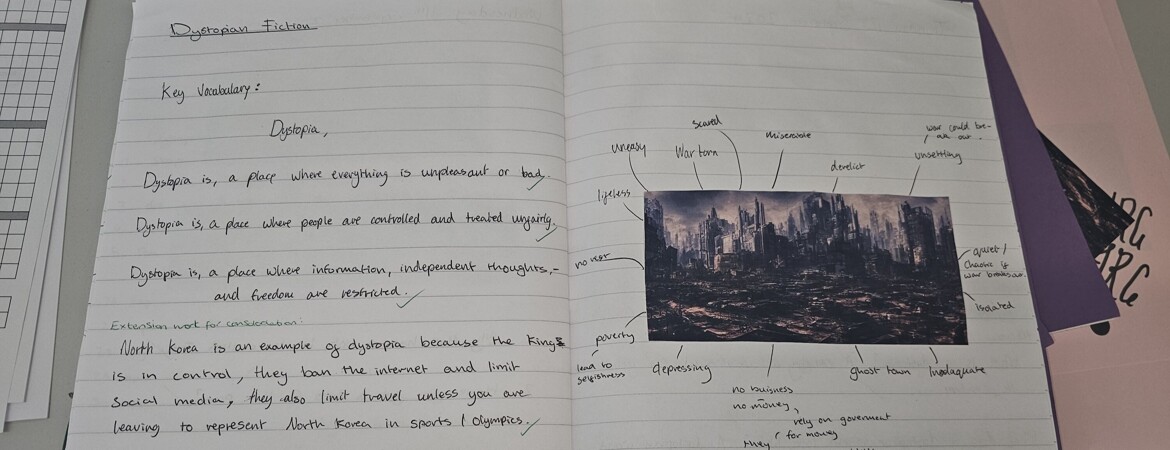 Dystopian Fiction
Key Vocabulary:
Dystopia,
Dystopia is, a place where everything is unpleasant or bad.
Dystopia is, a place where people are controlled and treated unfairly.
Dystopia is, a place where information, independent thoughts,-
and freedom are restricted.
Extension work for consolidation:
North Korea is an example of dystopia because the King
is in control, they ban the internet and limit
Social media, they also limit travel unless you are
leaving to represent North Korea in sports / Olympics.
scared
uneasy
War torn
miserable
derelict
war could bre-
ak out..
unsettling
lifeless
quiet /
Chaotic if
war breaks out.
isolated
poverty
lead to
selfishness
depressing
no buisness
no money,
rely on goverment
for money
they
ghost town
Inadaquate